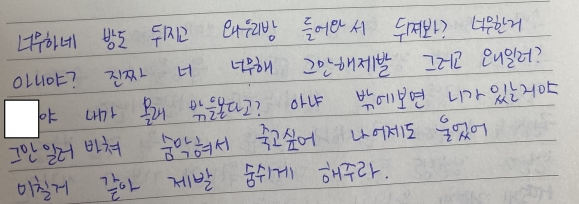 너무하네 방도 뒤지고 왜우리방 들어와서 뒤져봐? 너무한거
아니야? 진짜 너 너무해 그만해제발 그리고 왜일러?
야 내가 몰래 밖을본다고? 아냐 밖에보면 니가 있을거야
그만 일러 바쳐 숨막혀서 죽고싶어 나어제도 울었어
미칠거 같아 제발 숨쉬게 해주라.